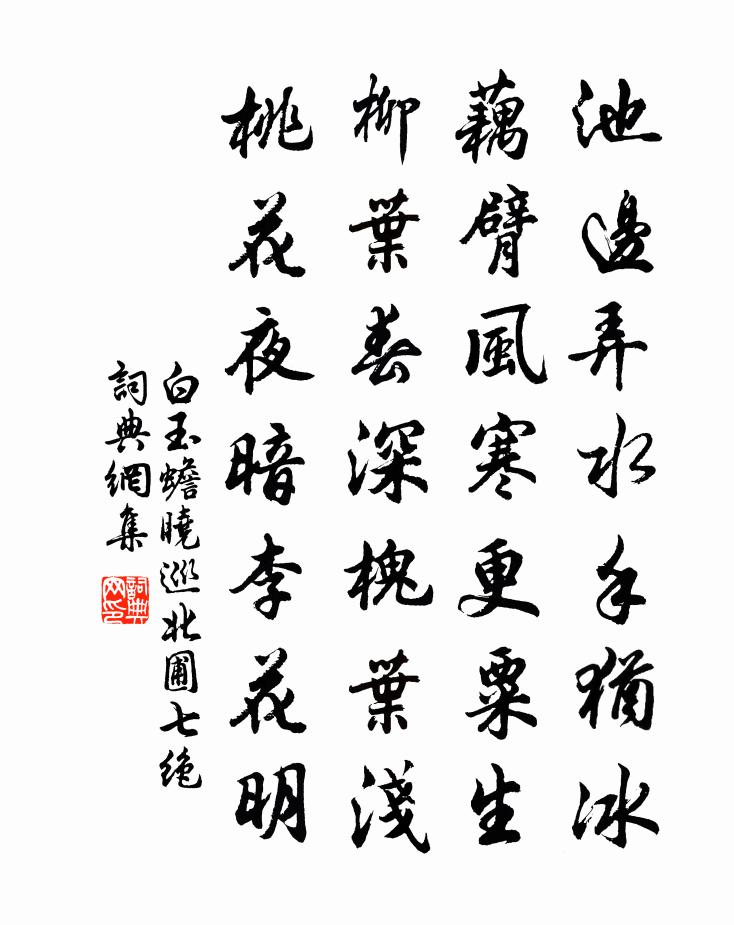 池邊弄水手猶冰
藕臂風寒更粟生
柳葉春深槐葉淺
桃花夜暗李花明
白玉蟾曉巡北圃七絕
詞典網集
詞典網印